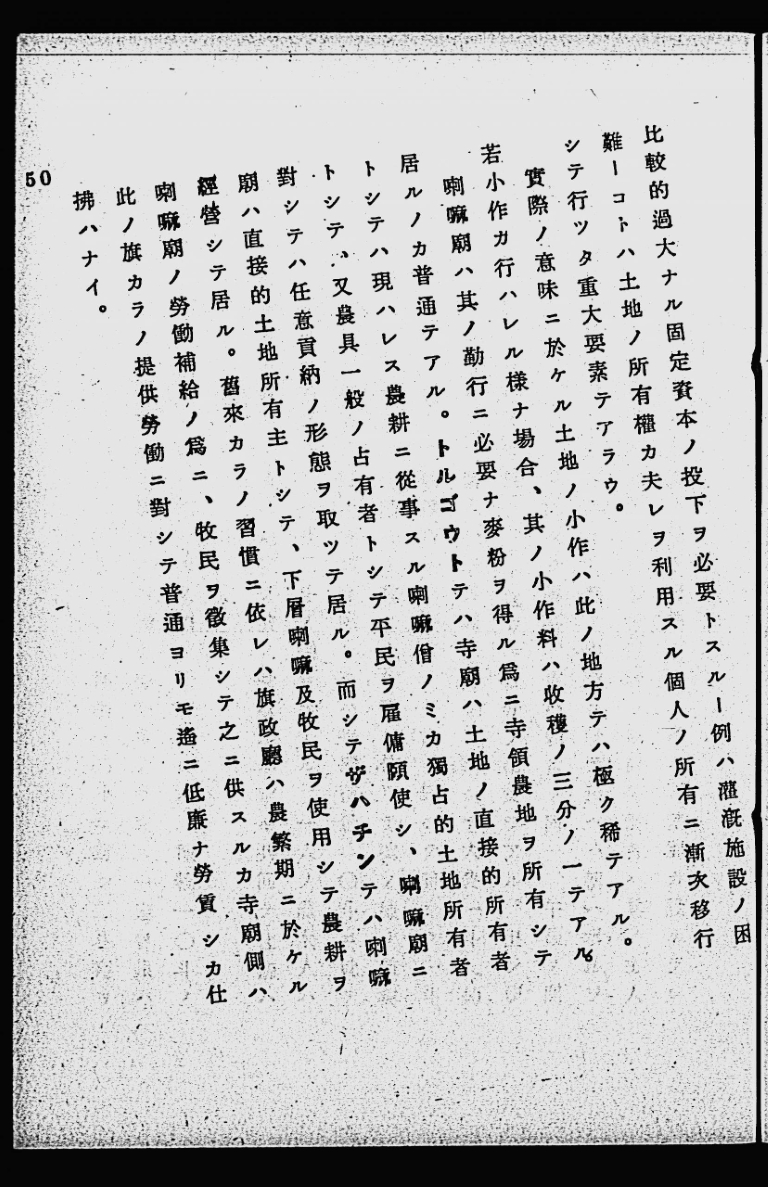 比較的過大ナル固定資本ノ投下ヲ必要トスルー例ハ灌漑施設ノ困
難ーコトハ土地ノ所有權カ夫レヲ利用スル個人ノ所有ニ漸次移行
シテ行ツタ重大要素テアラウ。
實際ノ意味ニ於ケル土地ノ小作ハ此ノ地方テハ極ク稀テアル。
若小作カ行ハレル樣ナ場合、其ノ小作料ハ收穫ノ三分ノ一テアル。
喇嘛廟ハ其ノ勤行ニ必要ナ麥粉ヲ得ル爲ニ寺領農地ヲ所有シテ
居ルノカ普通テアル。トルゴウトテハ寺廟ハ土地ノ直接的所有者
トシテハ現ハレス農耕ニ從事スル喇嘛僧ノミカ獨占的土地所有者
トシテ、又農具一般ノ占有者トシテ平民ヲ雇傭頤使シ、喇嘛廟ニ
對シテハ任意貢納ノ形態ヲ取ツテ居ル。而シテザハチンテハ喇嘛
廟ハ直接的土地所有主トシテ、下層喇嘛及牧民ヲ使用シテ農耕ヲ
經營シテ居ル。舊來カラノ習慣ニ依レハ旗政廳ハ農繁期ニ於ケル
喇嘛廟ノ勞働補給ノ爲ニ、牧民ヲ徵集シテ之ニ供スルカ寺廟側ハ
此ノ旗カラノ提供勞働ニ對シテ普通ヨリモ遙ニ低廉ナ勞賃シカ仕
拂ハナイ。
50